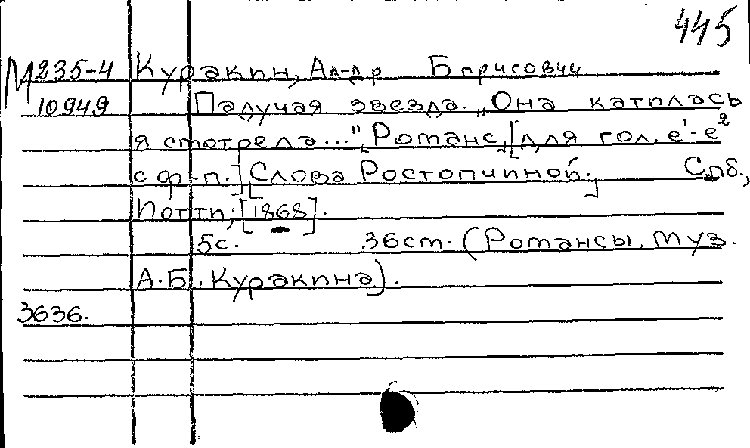 445
М 235-4 Куракин, Ал-др Борисович
10949 Падучая звезда. „Она катилась
я смотрела..." Романс, [для гол. e¹-e²
с ф-п.] [Слова Ростопчиной.] Спб.,
[1868].
5с. 36см. (Романсы муз.
А.Б. Куракина).
3636.